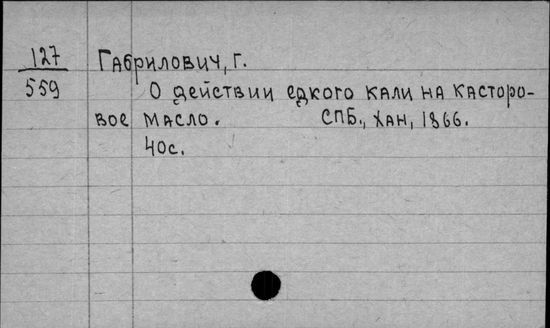 127 Габрилович, Г.
559 О действии едкого кали на касторо-
вое масло. СПБ., Хан, 1866.
40с.